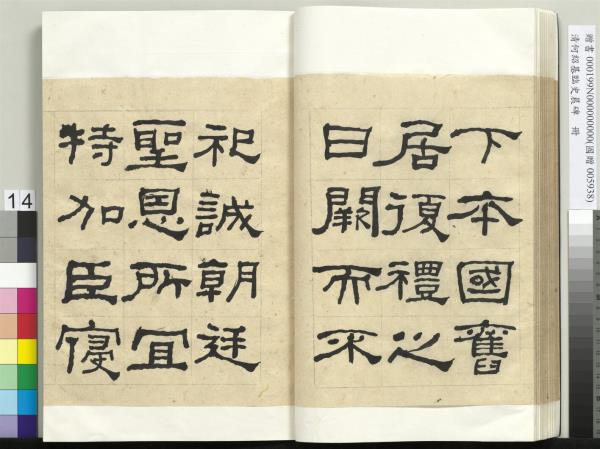 贈書 000199N000000000(國贈 005938)
清何紹基臨史晨碑 冊
14
下本國舊
居復禮之
日闕而不
祀誠朝廷
聖恩所宜
特加臣寑